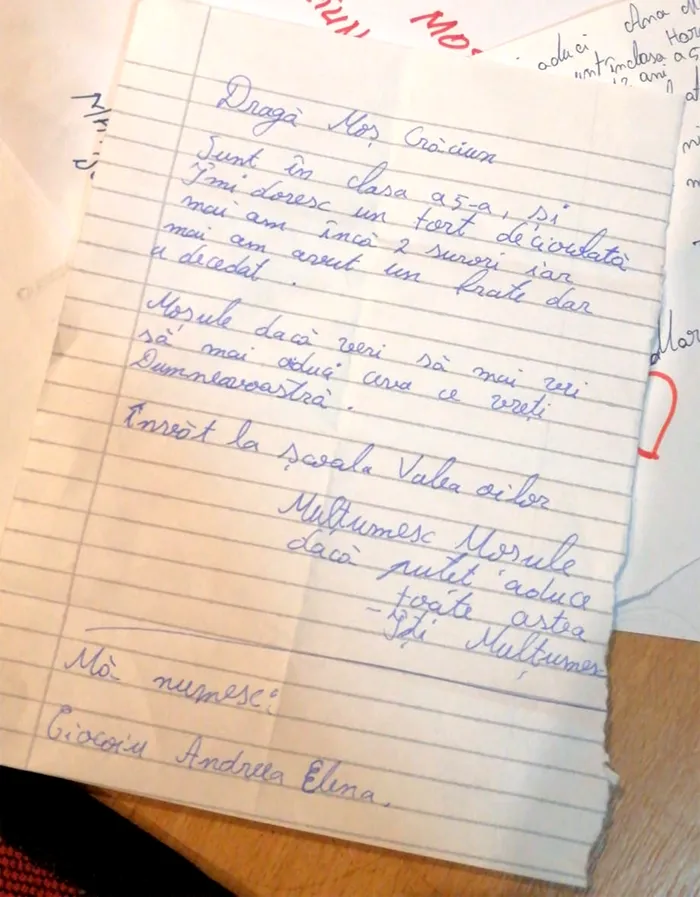 Dragă Moș Crăciun
Sunt în clasa a 5-a, și
Îmi doresc un tort de ciocolată
mai am încă 2 surori iar
mai am avut un frate dar
a decedat.
Mosule dacă vrei să mai vei
să mai aduci ceva ce vreți
Dumneavoastră.
Învăt la școala Valea oilor
Mulțumesc Mosule
dacă putet aduce
toate astea
-Îți Mulțumesc
Mă numesc:
Ciocoiu Andreea Elena.
aduci Ana
sunt înclasa a 5
12 ani
Mar